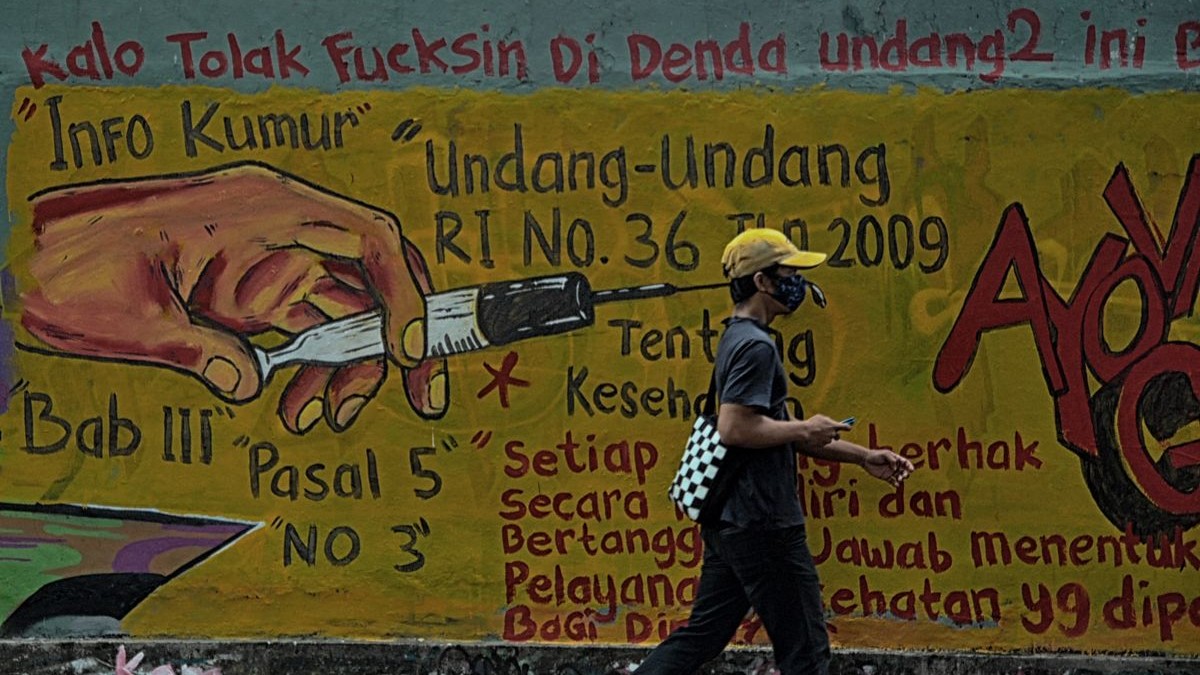 Kalo Tolak Fucksin Di Denda undang2 ini
"Info Kumur"
"Undang-Undang
RI No. 36 Thn 2009
Tentang
Kesehatan
"Bab III"
"Pasal 5"
"NO 3"
* "Setiap berhak
secara diri dan
Bertangg Jawab menentuk
Pelayana ehatan yg dipe
BaGi Di
AYO